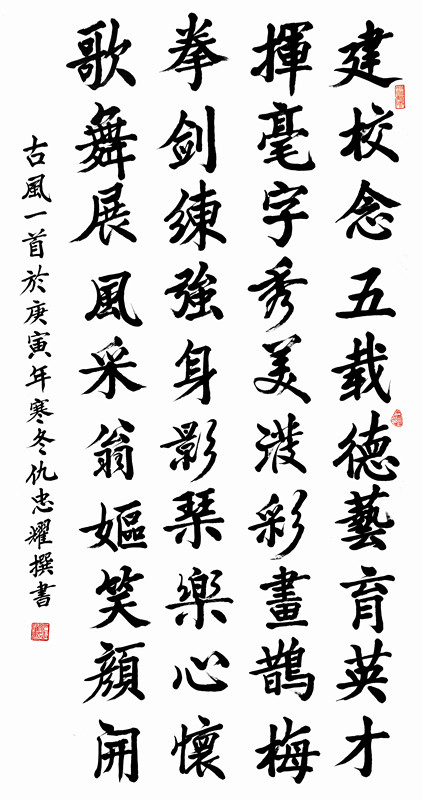 建校念五載德藝育英才
揮毫字秀美潑彩畫鵲梅
拳劍練強身影琴樂心懷
歌舞展風采翁嫗笑顏開
古風一首於庚寅年寒冬仇忠耀撰書